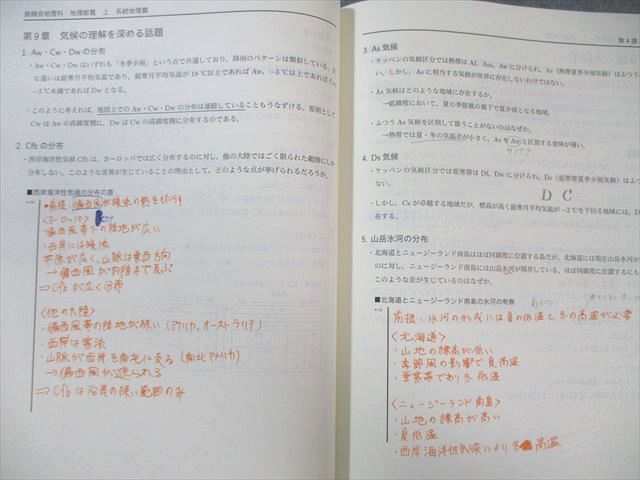 鉄緑会地理科 地理総覧 上 系統地理篇
第9章 気候の理解を深める話題
1. Aw・Cw・Dw の分布
・Aw・Cw・Dw はいずれも「冬季少雨」という点で共通しており、降雨のパターンは類似している。
な違いは最寒月平均気温であり、最寒月平均気温が 18℃以上であれば Aw、−3℃以上であれば C
−3℃未満であれば Dw となる。
・このように考えれば、地図上での Aw・Cw・Dw の分布は連続していることもうなずける。原則として
Cw は Aw の高緯度側に、Dw は Cw の高緯度側に分布するのである。
2. Cfb の分布
・西岸海洋性気候 Cfb は、ヨーロッパでは広く分布するのに対し、他の大陸ではごく限られた範囲にしか
分布しない。このような差異が生じていることの理由として、どのような点が挙げられるだろうか。
■西岸海洋性気候の分布の差
・前提:偏西風が
〈ヨーロッパ〉
・偏西風帯での陸地が広い
・西岸には暖流
・平原が広く、山脈は東西方向
→偏西風が内陸まで及ぶ
⇒Cfbが広く分布
〈他の大陸〉
・偏西風帯の陸地が狭い(アフリカ、オーストラリア)
・西岸は寒流
・山脈が西岸を南北に走る(南北アメリカ)
→偏西風が遮られる
⇒Cfbは沿岸の狭い範囲のみ
第4課
3. As 気候
・ケッペンの気候区分では熱帯は Af、Am、Aw に分けられ、As(熱帯夏季少雨気候)はふつ
い。しかし、As に相当する気候が世界に存在しないわけではない。
・As 気候はどのような地域に存在するか。
→低緯度において、夏の季節風の風下で夏少雨となる地域。
・ふつう As 気候を区別して扱うことがないのはなぜか。
→熱帯では夏・冬の気温差が小さく、As を Aw と区別する意味が薄い。
サバナ
4. Ds 気候
・ケッペンの気候区分では亜寒帯は Df、Dw に分けられ、Ds(亜寒帯夏季少雨気候)はふつ
D C
・しかし、Cs が卓越する地域だが、標高が高く最寒月平均気温が −3℃を下回る地域には、D
存在する。
5. 山岳氷河の分布
・北海道とニュージーランド南島はほぼ同緯度に位置する島だが、北海道には現在山岳氷河が
のに対し、ニュージーランド南島には山岳氷河が現存している。ほぼ同緯度に位置するに
このような差が生じているのはなぜか。
■北海道とニュージーランド南島の氷河の有無
前提:氷河の形成には夏の低温と冬の高温が必要
〈北海道〉
・山地の標高が低い
・季節風の影響で夏高温
・亜寒帯であり冬低温
〈ニュージーランド南島〉
・山地の標高が高い
・夏低温
・西岸海洋性気候により冬高温